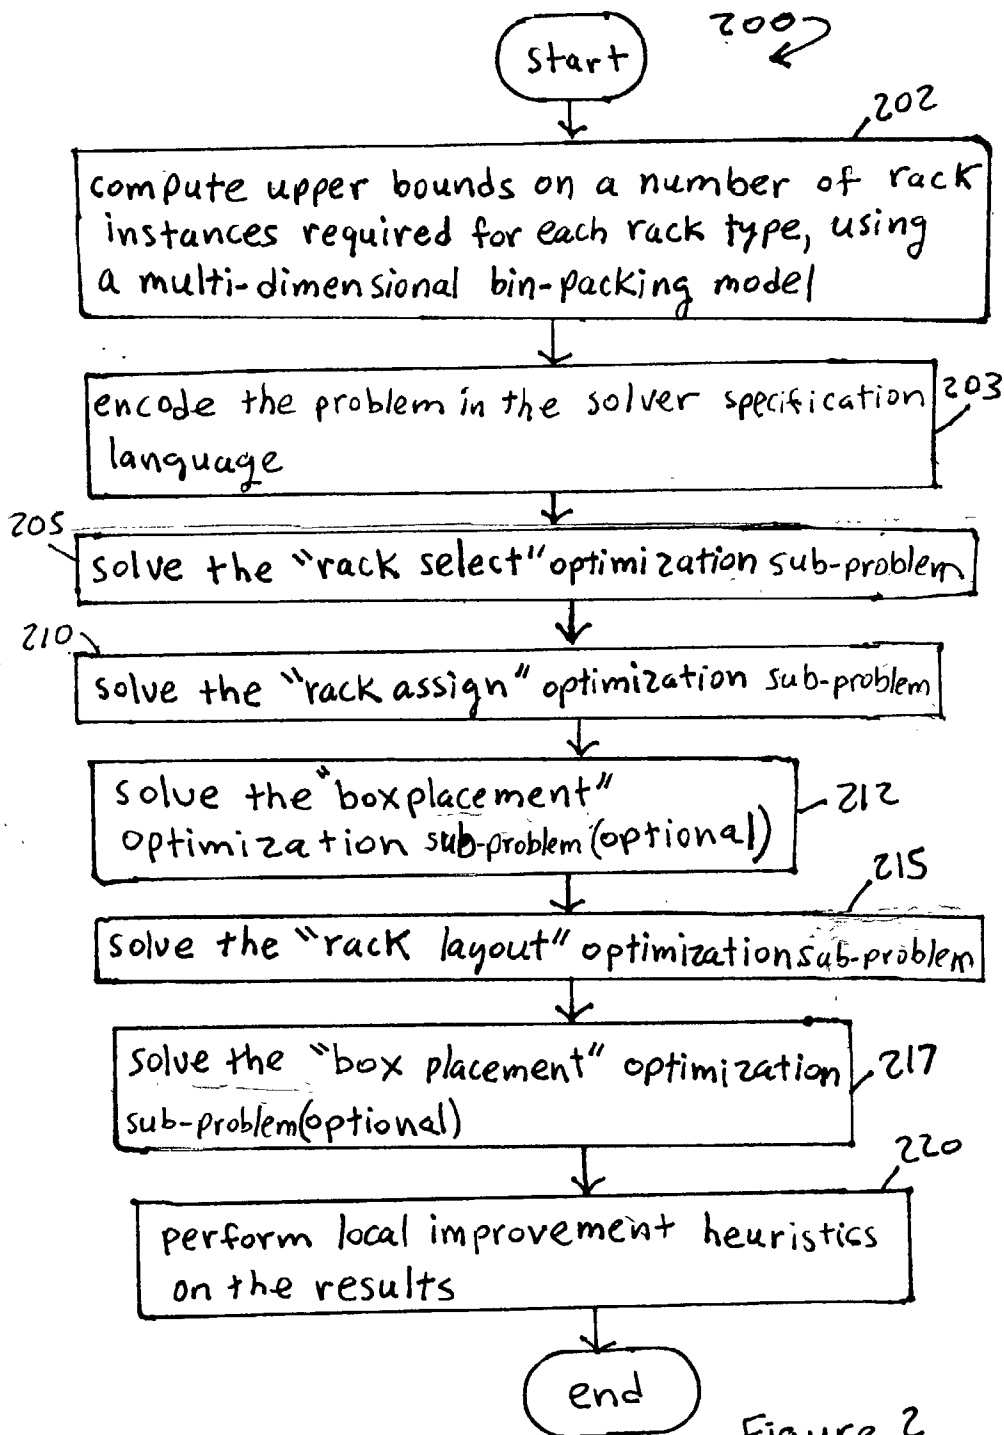 200
start
202
compute upper bounds on a number of rack
instances required for each rack type, using
a multi-dimensional bin-packing model
encode the problem in the solver specification
language
203
205
solve the "rack select" optimization sub-problem
210
solve the "rack assign" optimization sub-problem
solve the "box placement"
optimization sub-problem (optional)
212
215
solve the "rack layout" optimization sub-problem
solve the "box placement" optimization
sub-problem (optional)
217
220
perform local improvement heuristics
on the results
end
Figure 2